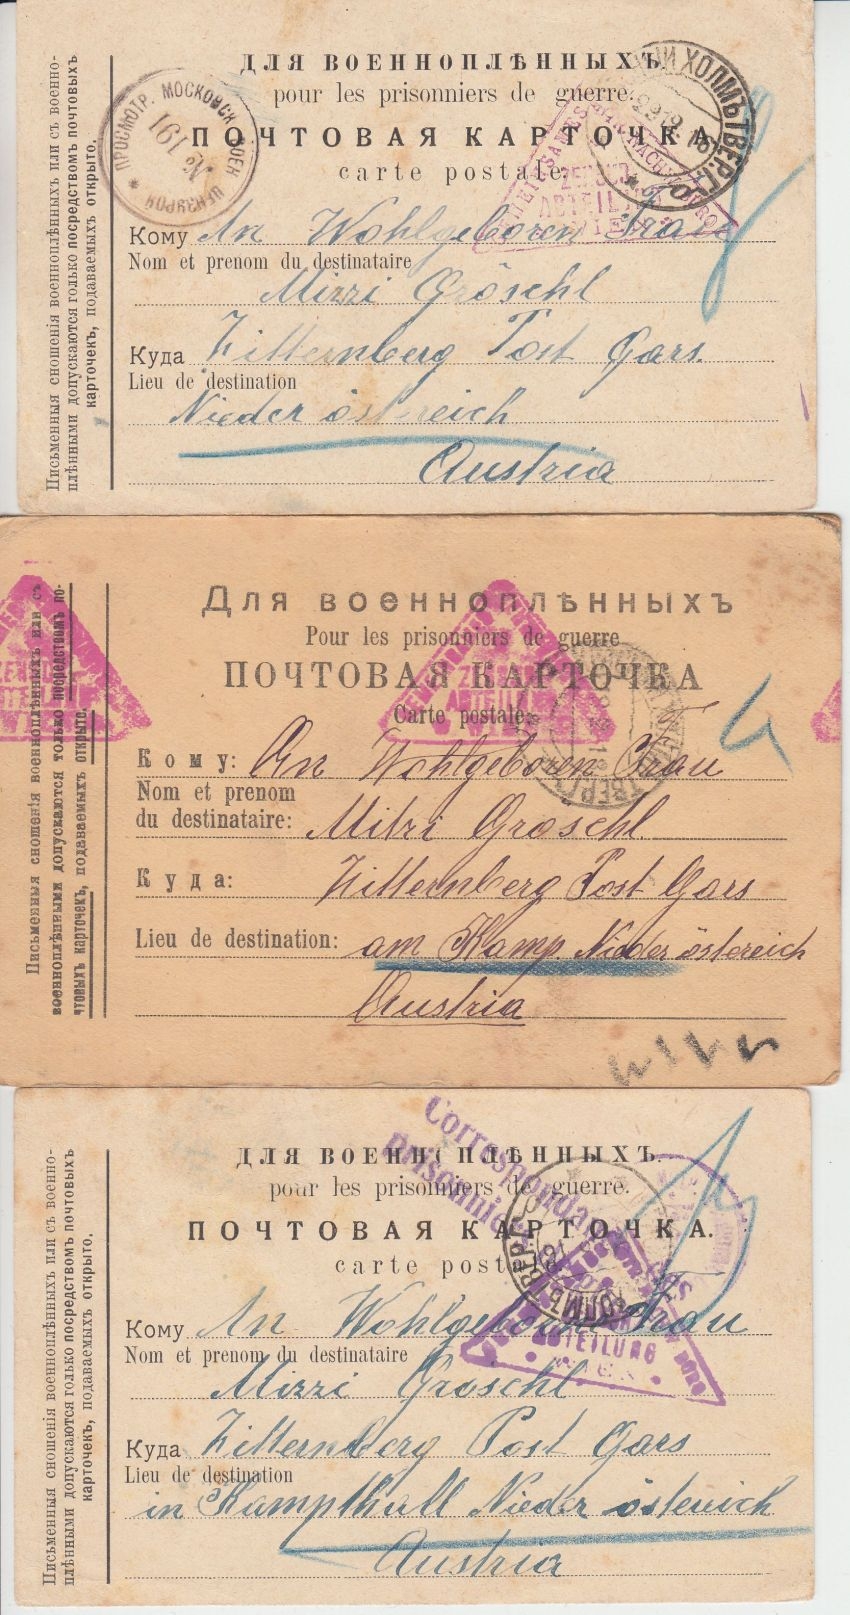 Письменныя сношенія военноплѣнныхъ или съ военно-
плѣнными допускаются только посредствомъ почтовыхъ
карточекъ, подаваемыхъ открыто.
ДЛЯ ВОЕННОПЛѢННЫХЪ
pour les prisonniers de guerre.
ПОЧТОВАЯ КАРТОЧКА
carte postale.
ПРОСМОТР. МОСКОВСК. ВОЕН. ЦЕНЗУРОЙ
№ 191
ХОЛМЪ ТВЕР.Г.
ZENSUR
ABTEILUNG
WIEN
Кому An Wohlgeboren Frau
Nom et prenom du destinataire
Mizzi Gröschl
Куда Zitternberg Post Gars.
Lieu de destination
Nieder östreich
Austria
Письменныя сношенія военноплѣнныхъ или съ
военноплѣнными допускаются только посредствомъ по-
чтовыхъ карточекъ, подаваемыхъ открыто.
Для военноплѣнныхъ
Pour les prisonniers de guerre
ПОЧТОВАЯ КАРТОЧКА
Carte postale:
ZENSUR
ABTEILUNG
WIEN
Кому: An Wohlgeboren Frau
Nom et prenom
du destinataire: Mitzi Gröschl
Куда: Zitternberg Post Gars
Lieu de destination: am Kamp. Nieder östereich
Austria
Письменныя сношенія военноплѣнныхъ или съ военно-
плѣнными допускаются только посредствомъ почтовыхъ
карточекъ, подаваемыхъ открыто.
ДЛЯ ВОЕННОПЛѢННЫХЪ.
pour les prisonniers de guerre.
ПОЧТОВАЯ КАРТОЧКА.
carte postale.
ХОЛМЪ ТВЕР.Г.
ABTEILUNG
WIEN
Кому An Wohlgeborne Frau
Nom et prenom du destinataire
Mizzi Gröschl
Куда Zitternberg Post Gars
Lieu de destination
in Kampthall Nieder östereich
Austria